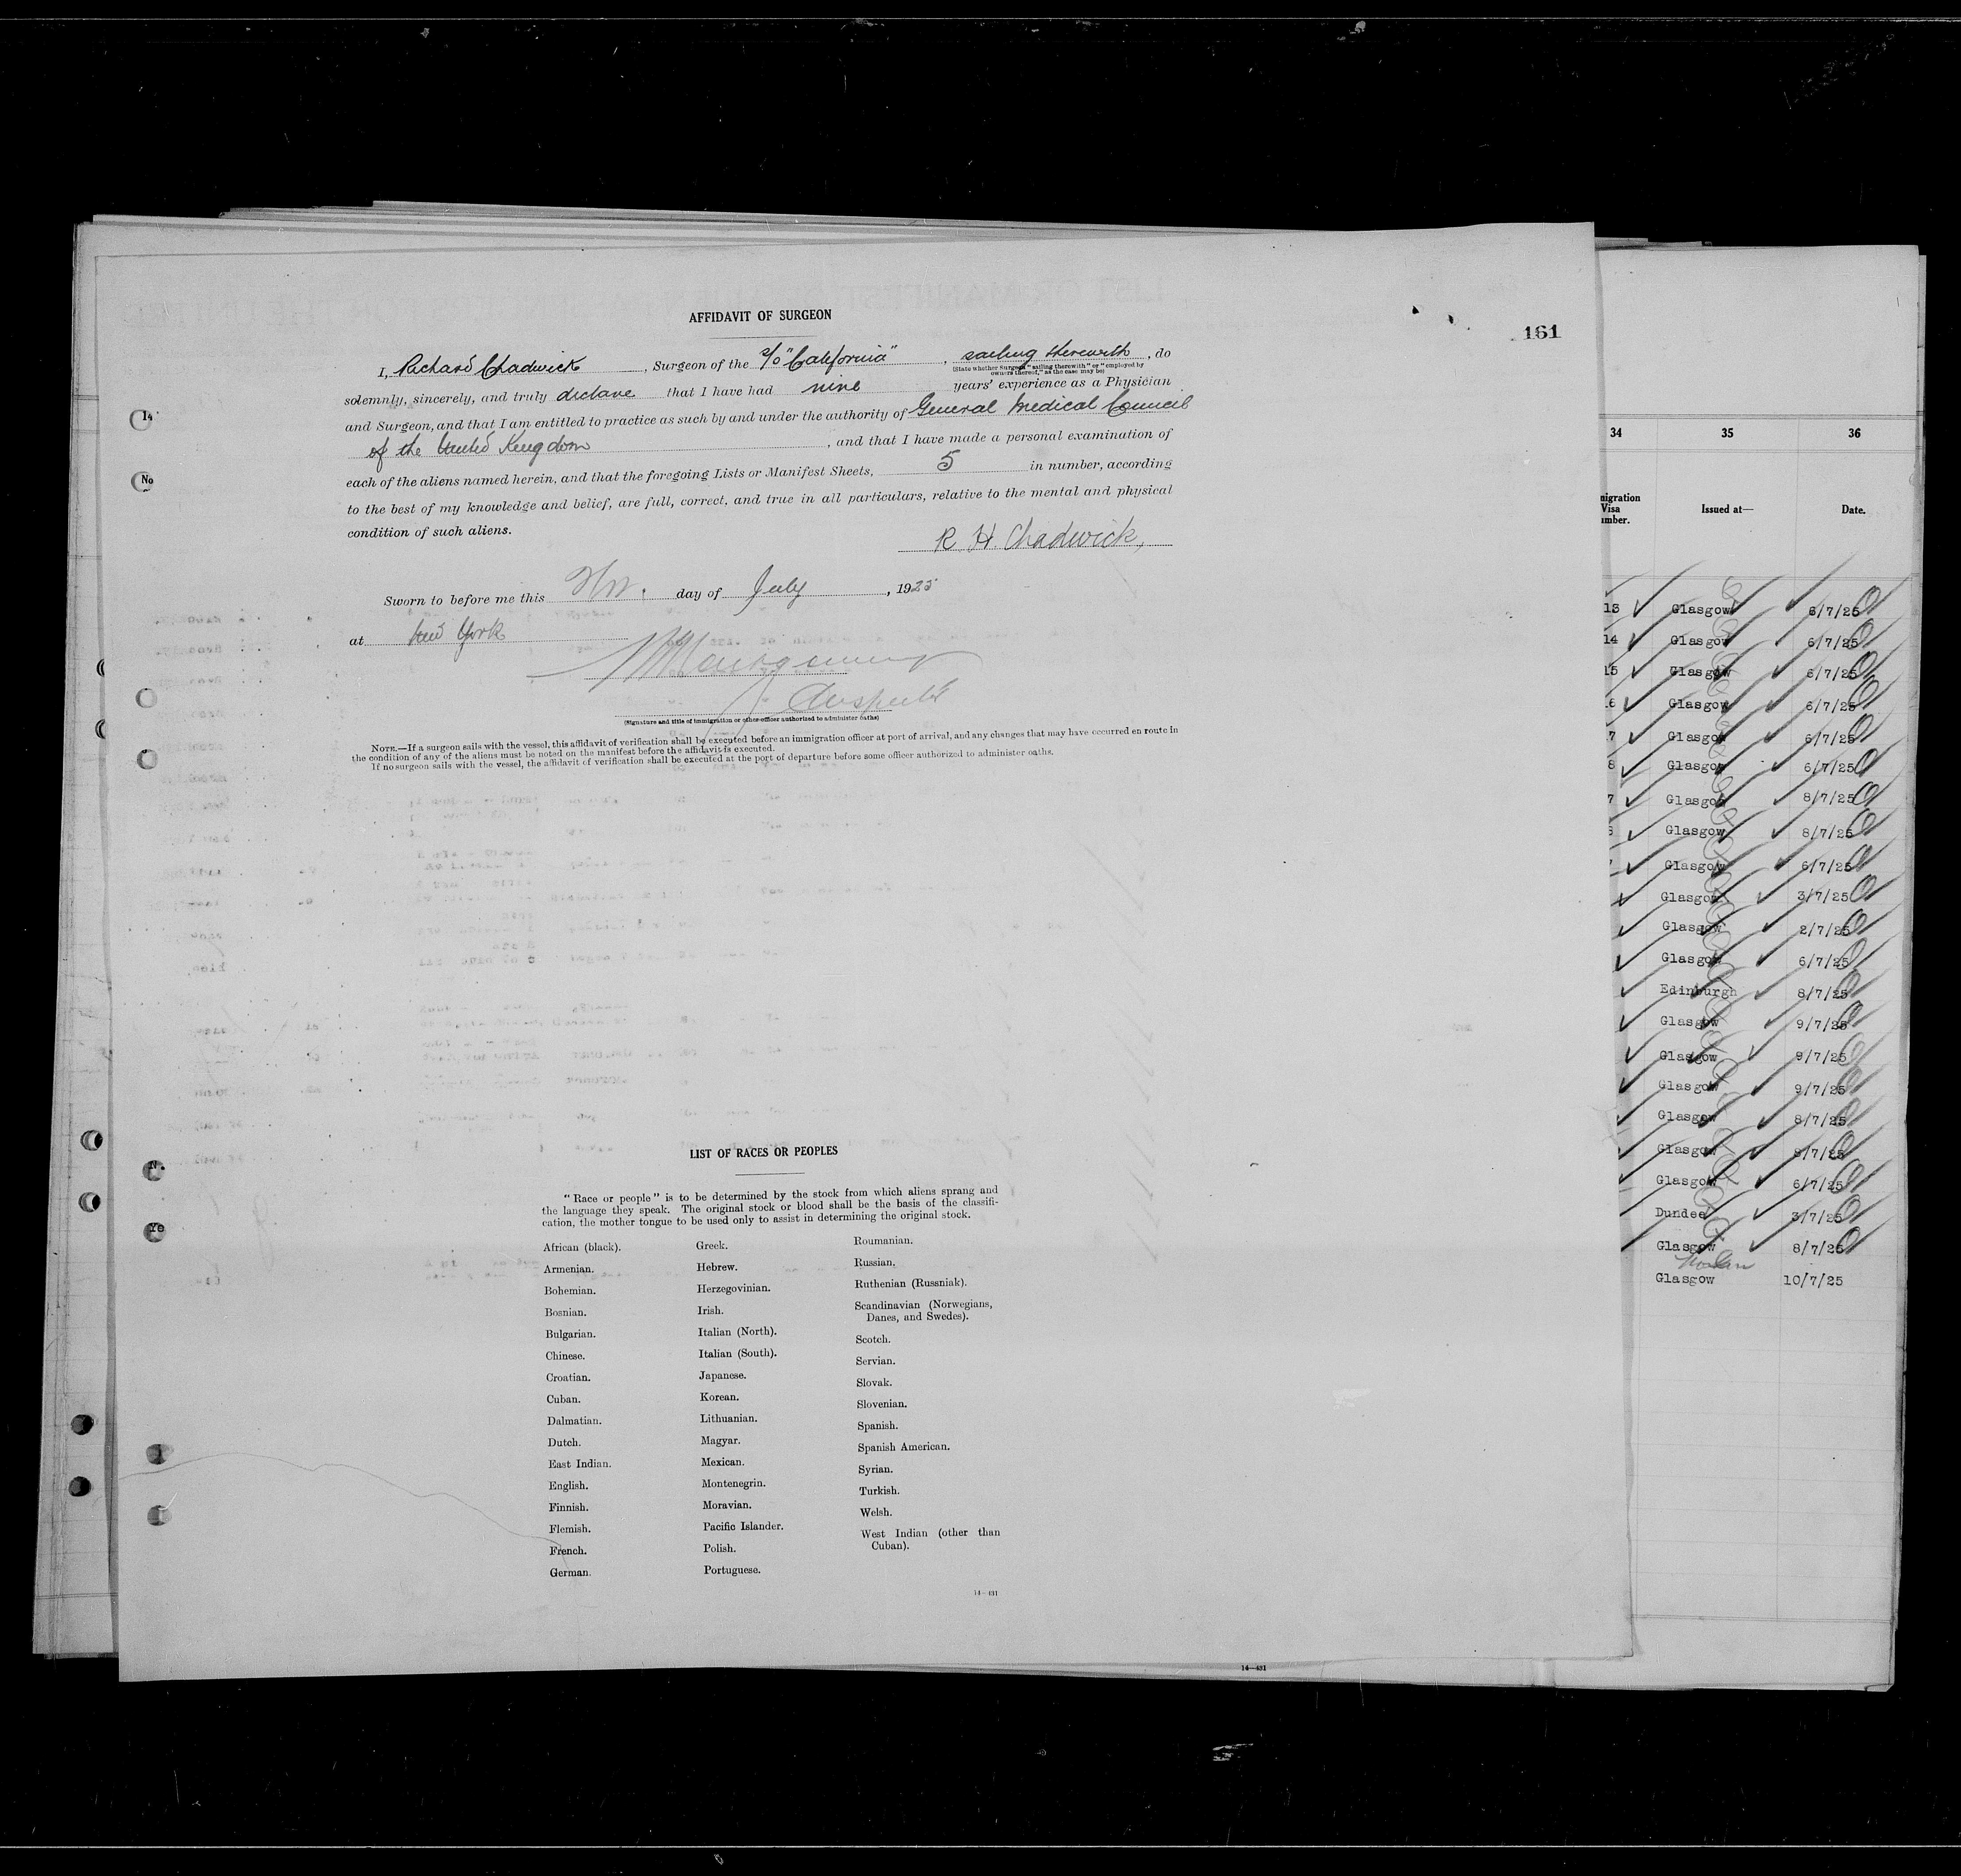 AFFIDAVIT OF SURGEON
161
I, Richard Chadwick, Surgeon of the S/S "California", sailing therewith, do
(State whether Surgeon "sailing therewith" or "employed by
owners thereof," as the case may be)
solemnly, sincerely, and truly declare that I have had nine years' experience as a Physician
and Surgeon, and that I am entitled to practice as such by and under the authority of General Medical Council
of the United Kingdom, and that I have made a personal examination of
each of the aliens named herein, and that the foregoing Lists or Manifest Sheets, 5 in number, according
to the best of my knowledge and belief, are full, correct, and true in all particulars, relative to the mental and physical
condition of such aliens.
R. H. Chadwick,
Sworn to before me this day of July, 1925
at New York
(Signature and title of immigration or other officer authorized to administer oaths)
NOTE.—If a surgeon sails with the vessel, this affidavit of verification shall be executed before an immigration officer at port of arrival, and any changes that may have occurred en route in
the condition of any of the aliens must be noted on the manifest before the affidavit is executed.
If no surgeon sails with the vessel, the affidavit of verification shall be executed at the port of departure before some officer authorized to administer oaths.
LIST OF RACES OR PEOPLES
"Race or people" is to be determined by the stock from which aliens sprang and
the language they speak. The original stock or blood shall be the basis of the classifi-
cation, the mother tongue to be used only to assist in determining the original stock.
African (black).
Armenian.
Bohemian.
Bosnian.
Bulgarian.
Chinese.
Croatian.
Cuban.
Dalmatian.
Dutch.
East Indian.
English.
Finnish.
Flemish.
French.
German.
Greek.
Hebrew.
Herzegovinian.
Irish.
Italian (North).
Italian (South).
Japanese.
Korean.
Lithuanian.
Magyar.
Mexican.
Montenegrin.
Moravian.
Pacific Islander.
Polish.
Portuguese.
Roumanian.
Russian.
Ruthenian (Russniak).
Scandinavian (Norwegians,
Danes, and Swedes).
Scotch.
Servian.
Slovak.
Slovenian.
Spanish.
Spanish American.
Syrian.
Turkish.
Welsh.
West Indian (other than
Cuban).
14—431
14—431
34 35 36
migration
Visa
umber.
Issued at—
Date.
13 Glasgow 6/7/25
14 Glasgow 6/7/25
15 Glasgow 6/7/25
6 Glasgow 6/7/25
7 Glasgow 6/7/25
8 Glasgow 6/7/25
7 Glasgow 8/7/25
Glasgow 8/7/25
Glasgow 6/7/25
Glasgow 3/7/25
Glasgow 2/7/25
Glasgow 6/7/25
Edinburgh 8/7/25
Glasgow 9/7/25
Glasgow 9/7/25
Glasgow 9/7/25
Glasgow 8/7/25
Glasgow 8/7/25
Glasgow 6/7/25
Dundee 3/7/25
Glasgow 8/7/25
Glasgow 10/7/25